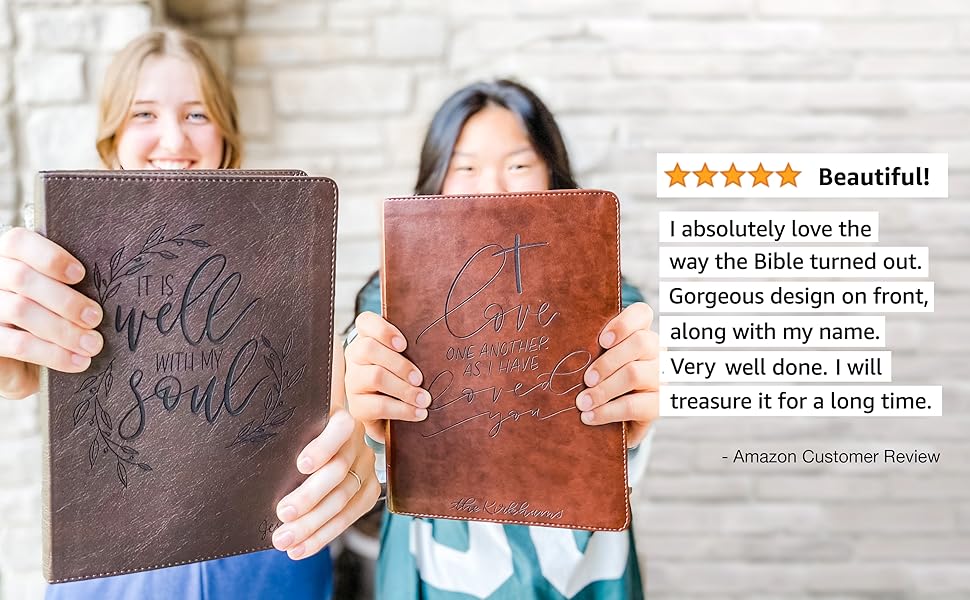 IT IS
well
WITH MY
soul
Love
ONE ANOTHER
AS I HAVE
loved
you
the Kirkhums
Beautiful!
I absolutely love the
way the Bible turned out.
Gorgeous design on front,
along with my name.
Very well done. I will
treasure it for a long time.
- Amazon Customer Review